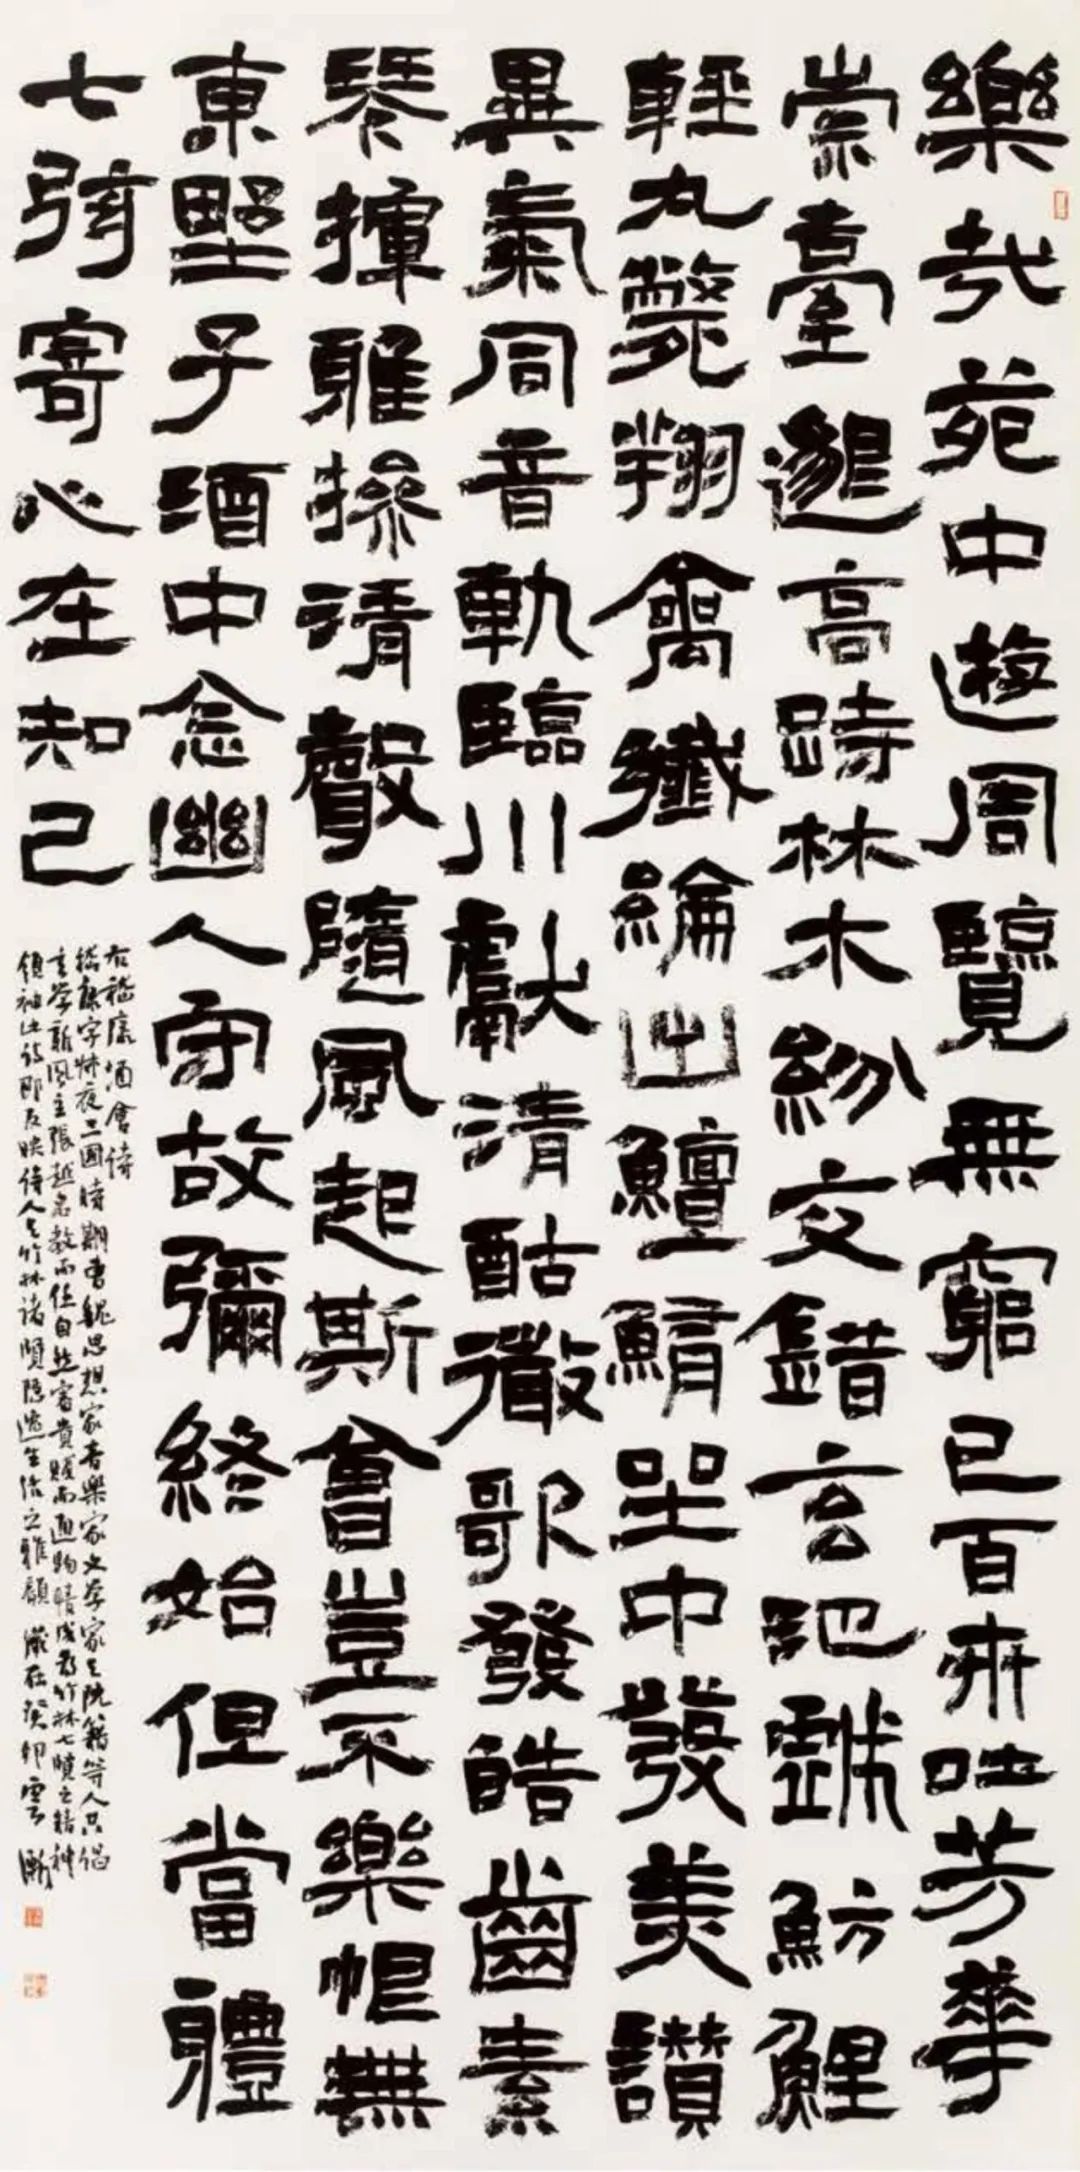 樂哉苑中遊周覽無窮已百卉吐芳華
崇臺邈高跱林木紛交錯玄池戲魴鯉
輕丸斃翔禽纖綸出鱣鮪坐中發美讚
異氣同音軌臨川獻清酤微歌發皓齒素
琴揮雅操清聲隨風起斯會豈不樂恨無
東野子酒中念幽人守故彌終始但當體
七弦寄心在知己
右嵇康酒會詩
嵇康字叔夜三國時期曹魏思想家音樂家文学家与阮籍等人共倡
玄学新風主張越名教而任自然審貴賤而通物情成为竹林七贤之精神
領袖此詩即反映詩人与竹林诸賢隐逸生活之雅 歲在癸卯雲